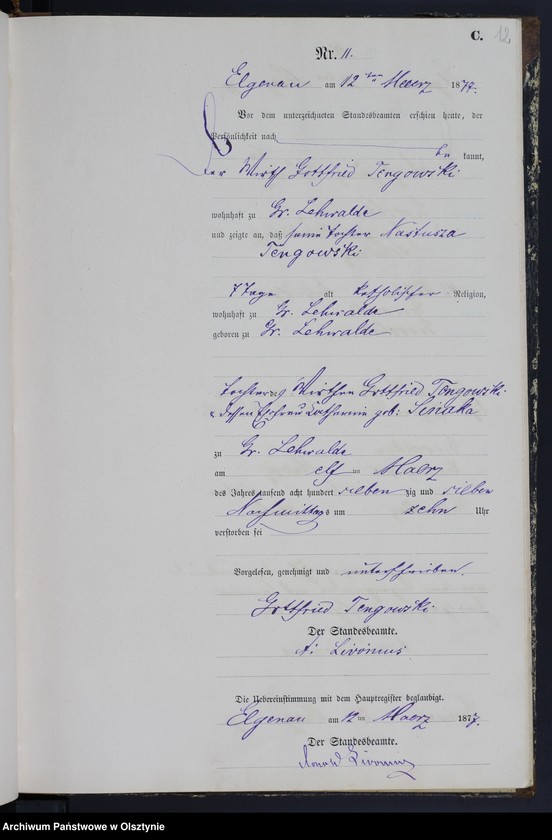 C. 12
Nr. 11.
Elgenau am 12 ten Maerz 1877.
Vor dem unterzeichneten Standesbeamten erschien heute, der
Persönlichkeit nach
be kannt,
der Wirth Gottfried Tengowski
wohnhaft zu Gr. Lehwalde
und zeigte an, daß seine Tochter Nastusza
Tengowski
7 Tage alt katholischer Religion,
wohnhaft zu Gr. Lehwalde
geboren zu Gr. Lehwalde
Tochter des Wirthen Gottfried Tengowski
& dessen Ehefrau Catharina geb: Siniaka
zu Gr. Lehwalde
am elf ten Maerz
des Jahres tausend acht hundert sieben zig und sieben
Nachmittags um zehn Uhr
verstorben sei
Vorgelesen, genehmigt und unterschrieben.
Gottfried Tengowski
Der Standesbeamte.
A: Livonius
Die Uebereinstimmung mit dem Hauptregister beglaubigt.
Elgenau am 12 ten Maerz 1877.
Der Standesbeamte.
Arnold Livonius
Archiwum Państwowe w Olsztynie